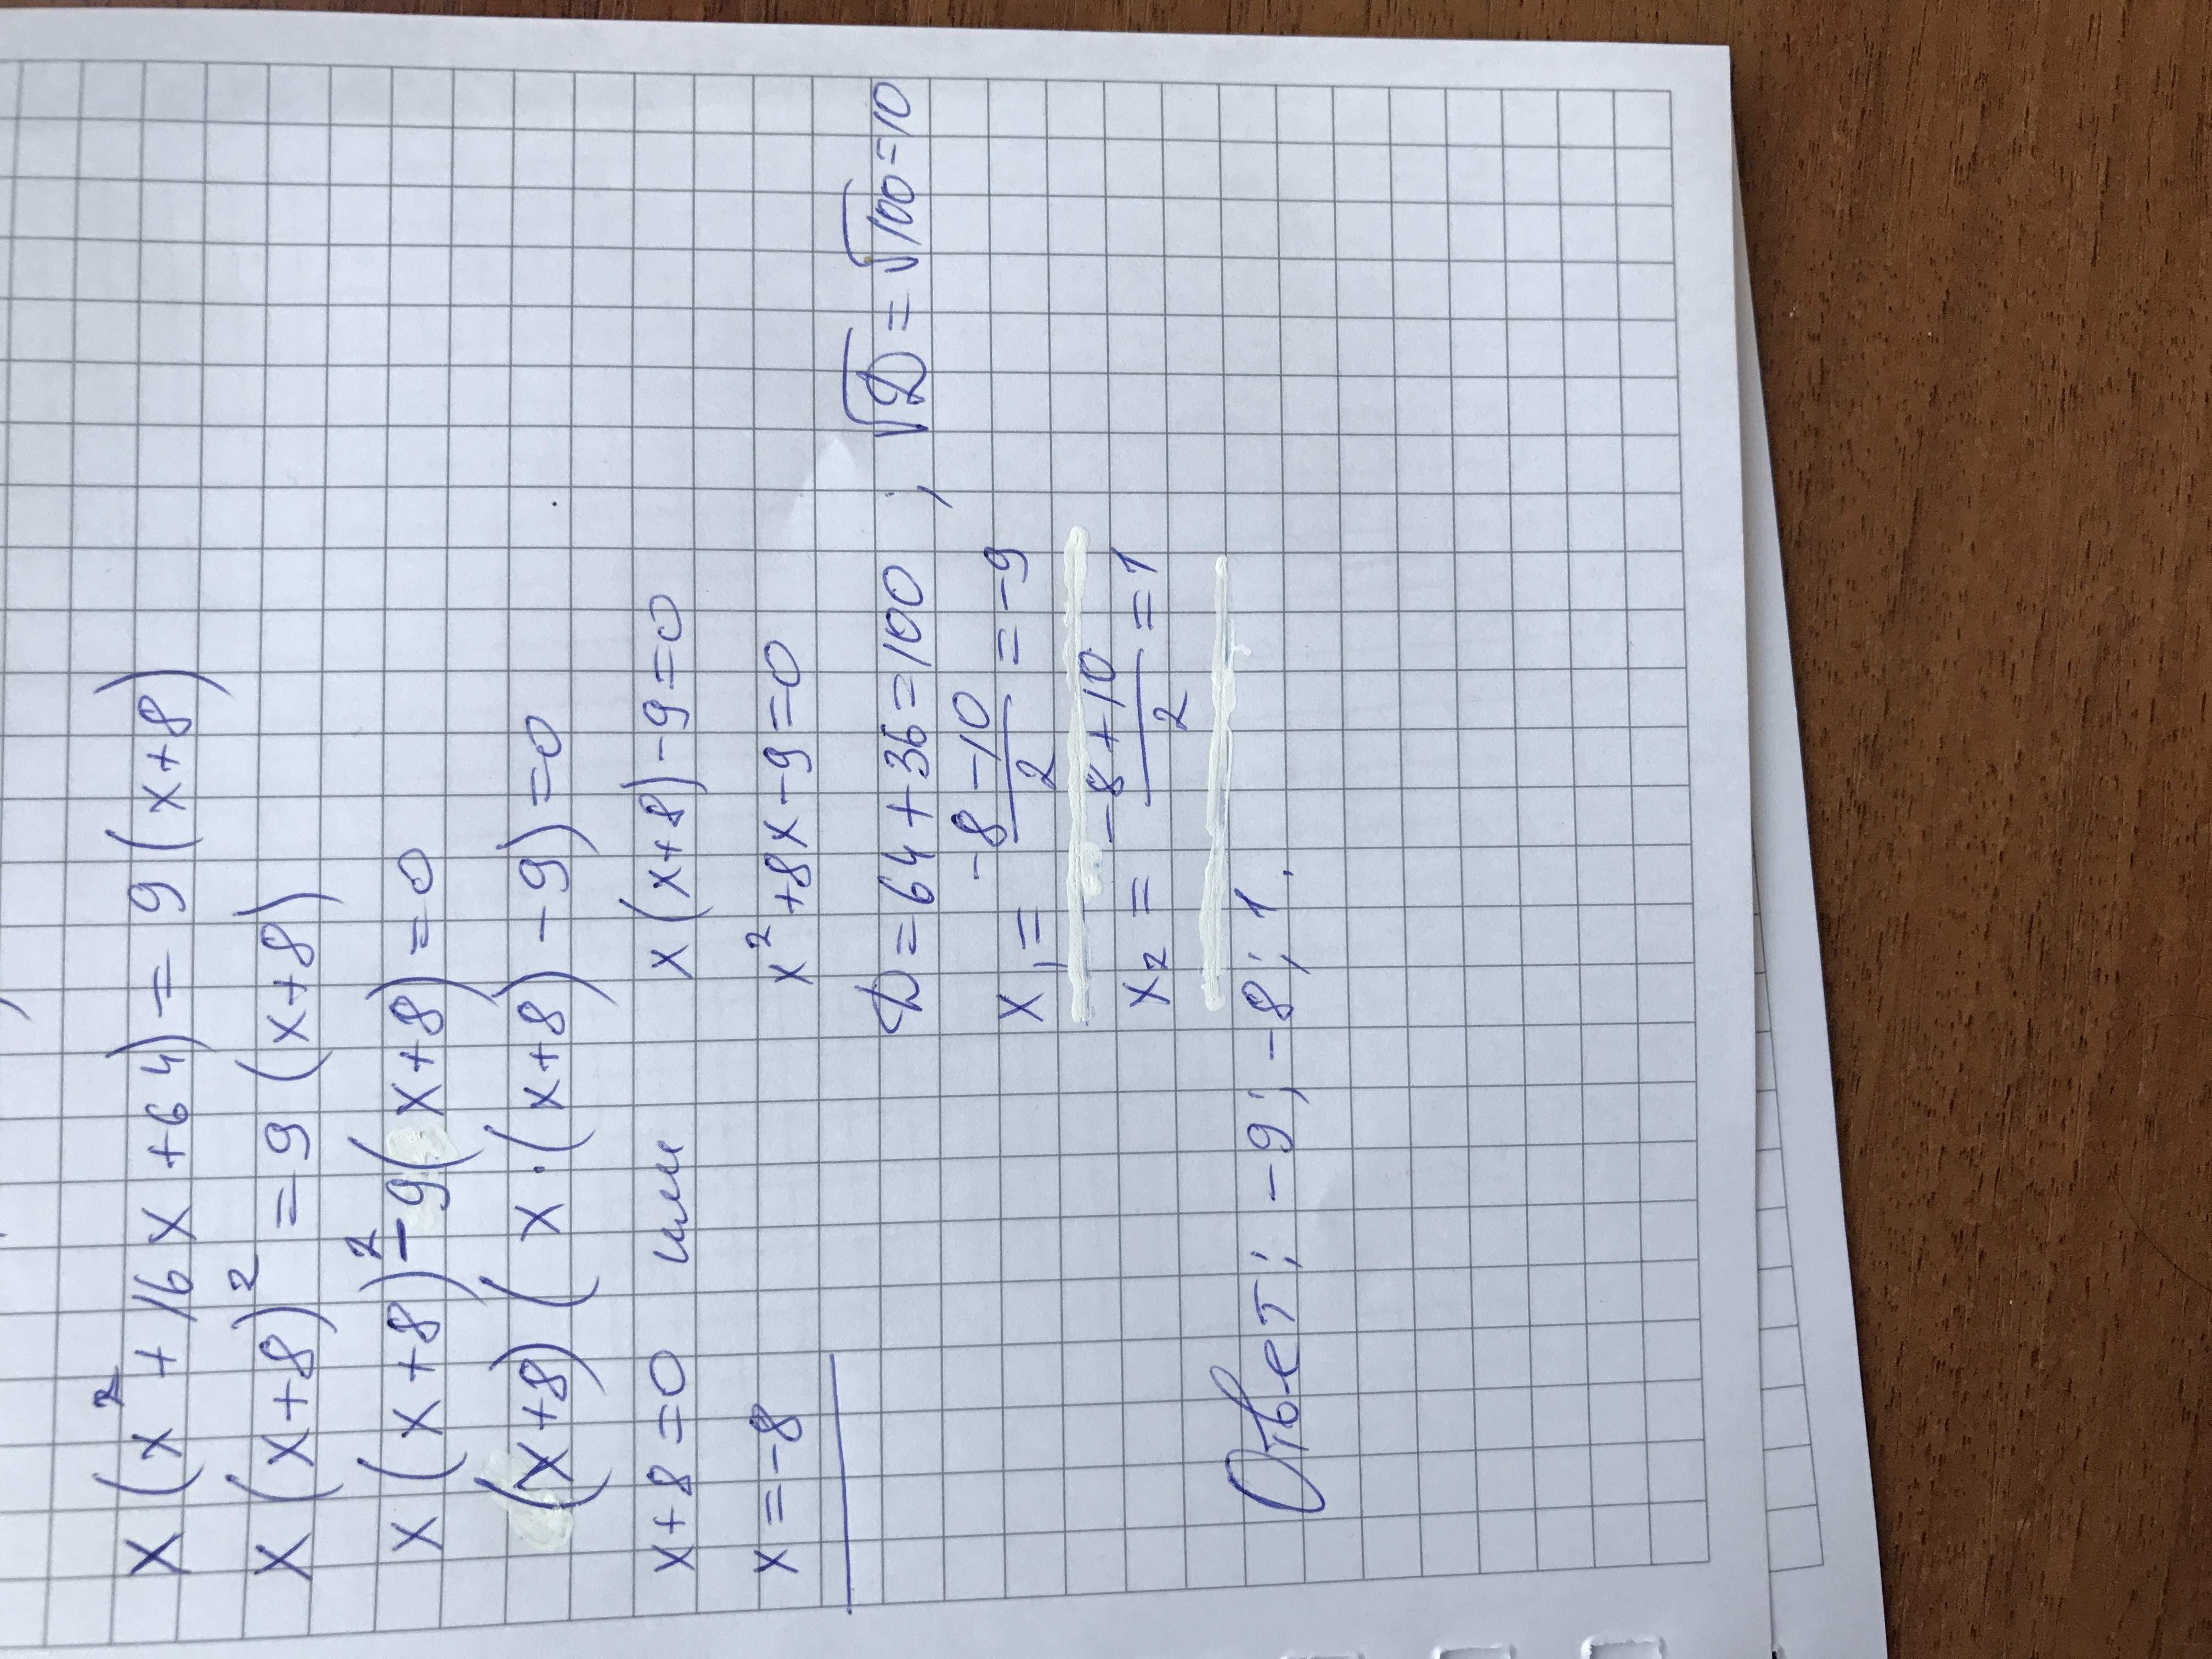 x(x²+16x+64)=9(x+8)
x(x+8)²=9(x+8)
x(x+8)²-9(x+8)=0
(x+8)(x·(x+8)-9)=0
x+8=0 или x(x+8)-9=0
x=-8 x²+8x-9=0
D=64+36=100; √D=√100=10
x₁=(-8-10)/2=-9
x₂=(-8+10)/2=1
Ответ: -9; -8; 1.